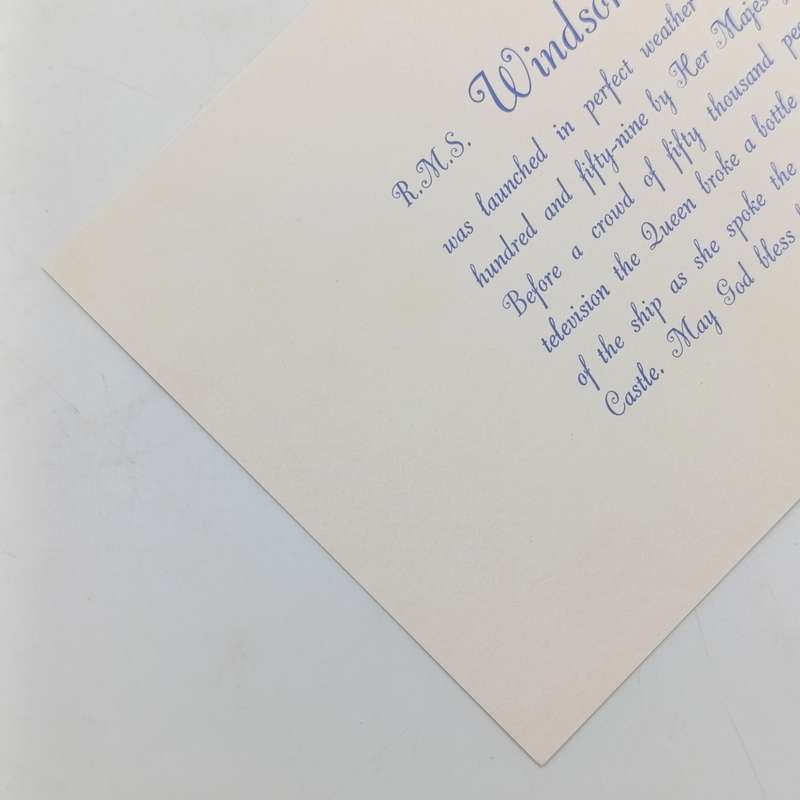 R.M.S. Windsor
was launched in perfect weather
hundred and fifty-nine by Her
Before a crowd of fifty thousand
television the Queen broke a bottle
of the ship as she spoke the
Castle. May God bless